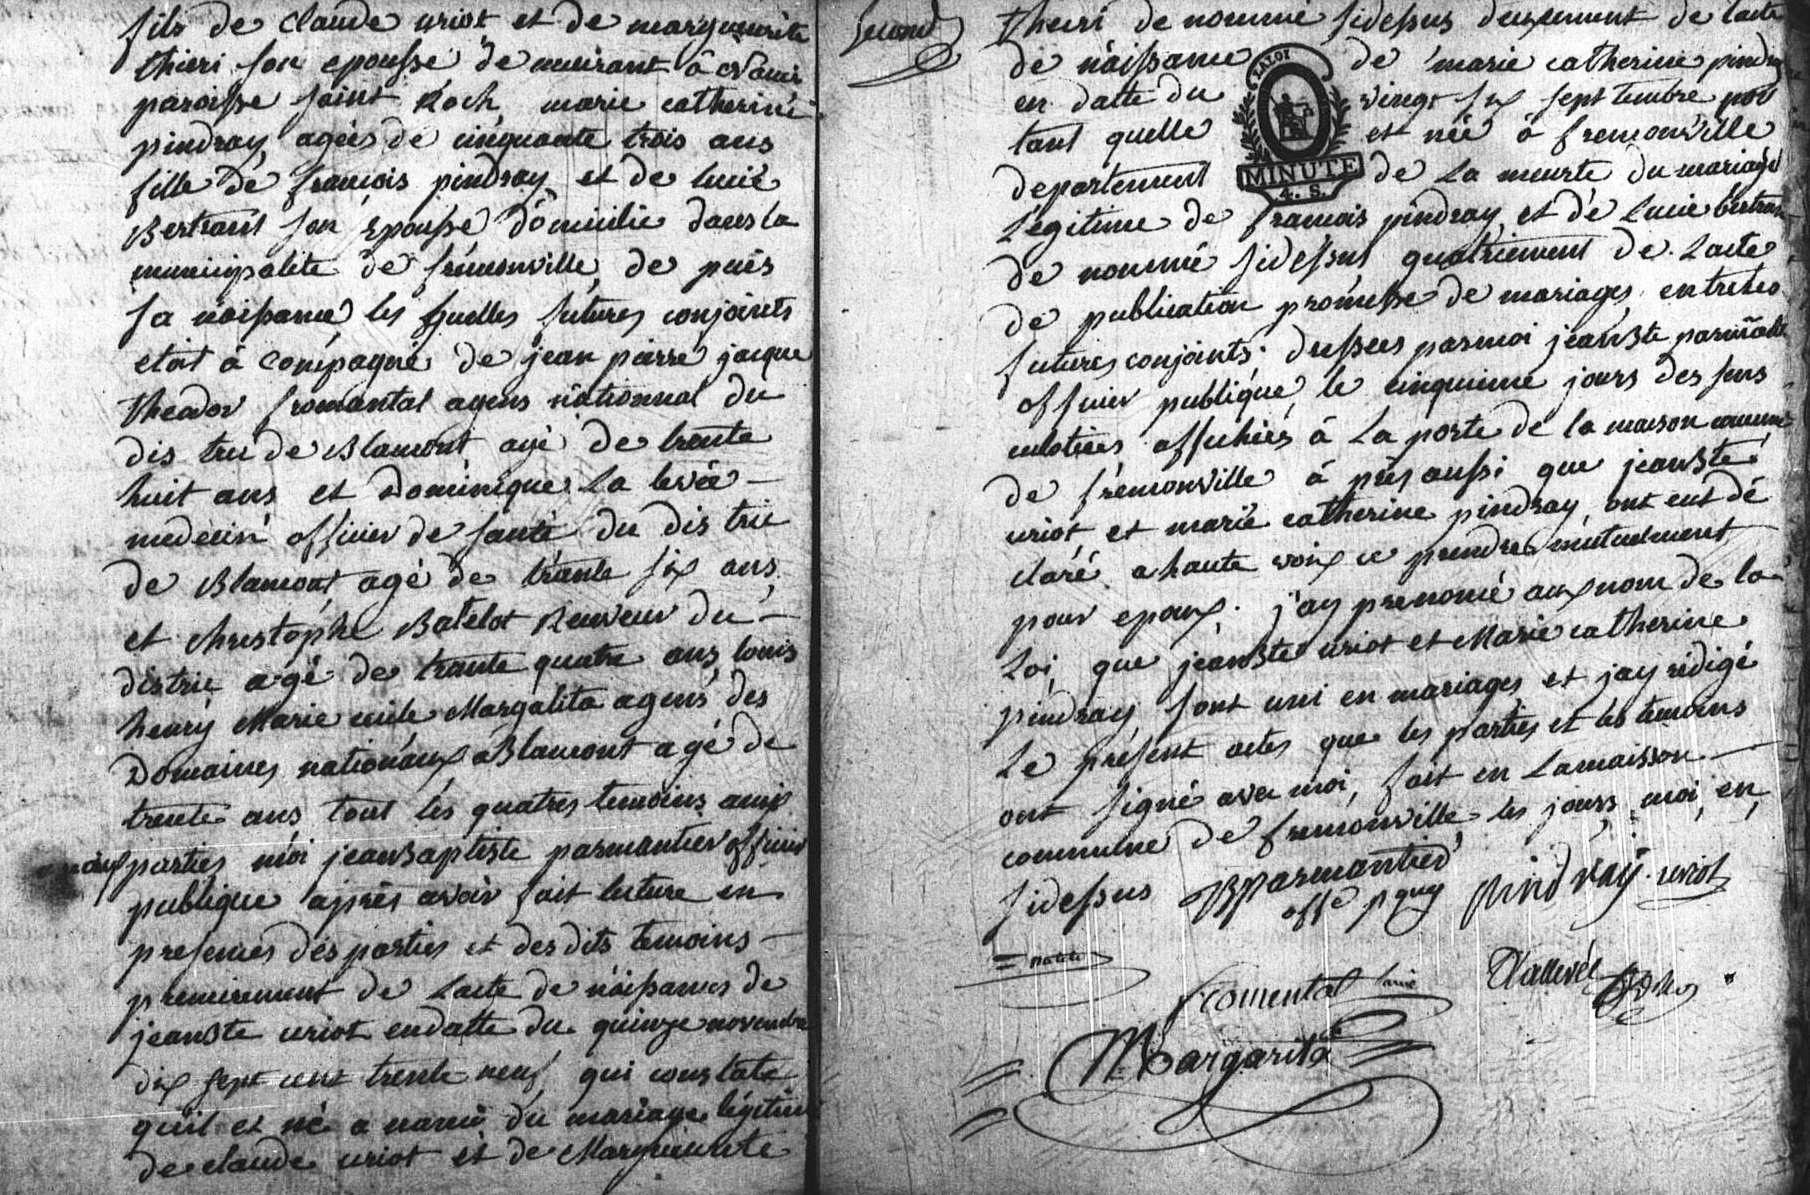 fils de claude uriot et de marguerite
thieri son epousse demeurant â Nanci
paroisse saint Roch marie catherine
pindray agées de cinquante trois ans
fille de francois pindray et de lucie
Bertrant son Epousse domicilie dans la
municipalite de frémonville de puis
sa naissance les squelles futures conjoints
etoit â compagné de jean pierre jacque
theador fromantal agens nâtionnal du
dis tric de Blamont agé de trente
huit ans et Dominique La levée
medecin officier de santé du dis tric
de Blamont agé de trante six ans
et christophe Batelot Reuveur du
distric agé de trante quatre ans louis
henry Marie cecile Margalita agens des
Domaines nationaux a Blamont agé de
trente ans tout les quatres temoins amis
aux parties moi jean Baptiste parmantier officier
publique après avoir fait lecture en
presences des parties et des dits temoins
premierement de Lacte de naissances de
jeanBte uriot en datte du quinze novembre
dix sept cent trente neuf qui constate
quil et né a nanci du mariage légitime
de claude uriot et de Marguerite
second
thieri de nommé sidessus deuxement de lacte
de naissance de marie catherine pindray
LA LOI
en datte du vingt six septtembre
tant quelle est née â fremonville
departement de La meurte du mariage
MINUTE
4. S.
Légitime de francois pindray et de Lucie bertran
de nommé sidessus quatriement de Lacte
de publication promesse de mariages entre les
futures conjoints dressées par moi jeanBte parmantier
officier publique le cinquieme jours des sans
culotides affichées â La porte de la maison commune
de frémonville â prés aussi que jeanBte
uriot et marie catherine pindray ont eut dé
claré a haute voix ce prendre mutuelement
pour epoux j'ay prenoncé aux nom de la
Loi que jeanBte uriot et Marie catherine
pindray sont uni en mariages et jay rédigé
Le présent actes que les parties et les temoins
ont signé avec moi, fait en La maisson
commulne de fremonville les jours moi, en
sidessus BParmantier pindray uriot
offe pque
Fromental lainé Dlallevée
Margarita